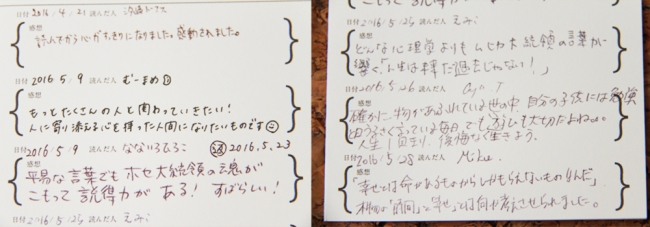 日付 2016/4/21 読んだ人
感想
読んでから心がすっきりになりました。感動されました。
日付 2016 5/9 読んだ人 むーまめ
感想
もっとたくさんの人と関わっていきたい!
人に寄り添える心を持った人間になりたいものです
日付 2016 5/9 読んだ人 なないろひろこ 2016.5.23
感想
平易な言葉でもホセ大統領の魂が
こもって説得力がある! すばらしい!
日付 2016/5/25 読んだ人 えみこ
日付 2016/5/25 読んだ人 えみこ
感想
どんな心理学よりもムヒカ大統領の言葉が
響く。「人生は
日付 2016 5/26 読んだ人
感想
確かに、物があふれている世の中 自分の子供には勉強
とうるさく言っている毎日でも、 も大切だよね。
人生1回きり、後悔なく生きよう。
日付 2016/5/28 読んだ人 Mika
感想
「幸せとは命があるものからしかもらえないものなんだ」
「時間」と「幸せ」とは何か考えさせられました。